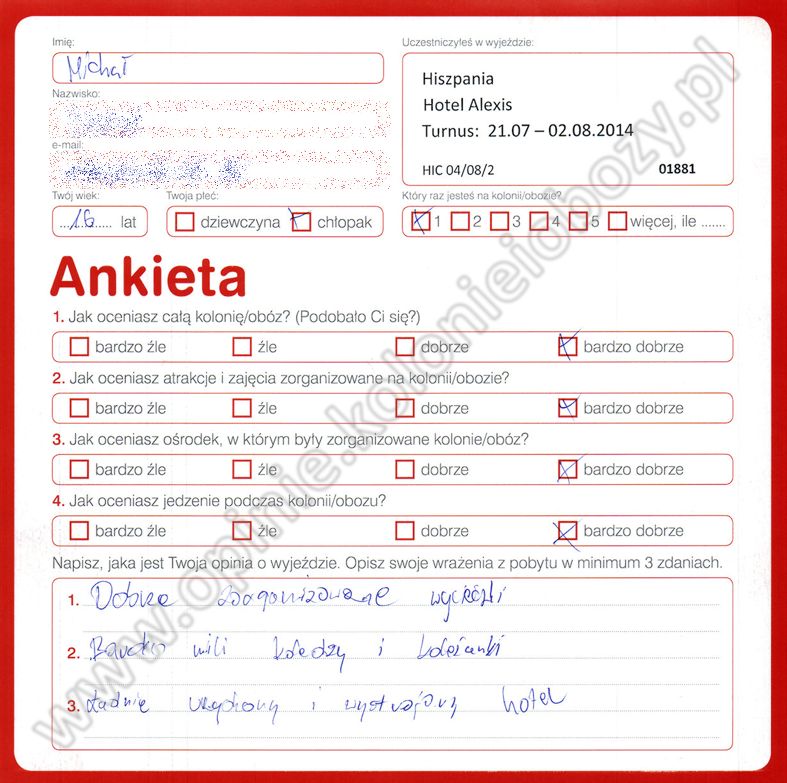 Imię:
Michał
Uczestniczyłeś w wyjeździe:
Hiszpania
Hotel Alexis
Turnus: 21.07 – 02.08.2014
HIC 04/08/2 01881
Nazwisko:
e-mail:
Twój wiek:
...16..... lat
Twoja płeć:
dziewczyna chłopak
Który raz jesteś na kolonii/obozie?
1 2 3 4 5 więcej, ile .......
Ankieta
1. Jak oceniasz całą kolonię/obóz? (Podobało Ci się?)
bardzo źle źle dobrze bardzo dobrze
2. Jak oceniasz atrakcje i zajęcia zorganizowane na kolonii/obozie?
bardzo źle źle dobrze bardzo dobrze
3. Jak oceniasz ośrodek, w którym były zorganizowane kolonie/obóz?
bardzo źle źle dobrze bardzo dobrze
4. Jak oceniasz jedzenie podczas kolonii/obozu?
bardzo źle źle dobrze bardzo dobrze
Napisz, jaka jest Twoja opinia o wyjeździe. Opisz swoje wrażenia z pobytu w minimum 3 zdaniach.
1. Dobrze zorganizowane wycieczki
2. Bardzo mili koledzy i koleżanki
3. Ładnie urządzony i wystrojony hotel
www.opinie.kolonieiobozy.pl